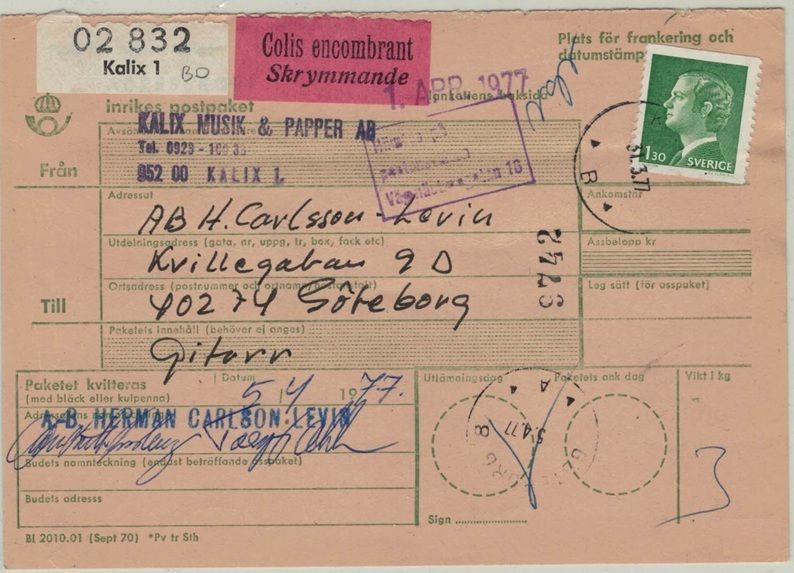 02 832
Kalix 1
BD
Colis encombrant
Skrymmande
Plats för frankering och
datumstämp
1. APR. 1977
blankettens baksida
1.30
SVERIGE
inrikes postpaket
Från
KALIX MUSIK & PAPPER AB
Tel. 0923 -
952 00 KALIX 1.
31.3.77
B
Ankomstnr
Adressat
AB H. Carlsson-Levin
Utdelningsadress (gata, nr, uppg, tr, box, fack etc)
Assbelopp kr
Kvillegatan 9 D
2446
Ortsadress (postnummer och ortnamn/postanstalt)
Leg sätt (för asspaket)
Till
40274 Göteborg
Paketets innehåll (behöver ej anges)
Gitarr
Paketet kvitteras
(med bläck eller kulpenna)
Datum
5/4 1977.
Utlämningsdag
Paketets ank dag
Vikt i kg
A.-B. HERMAN CARLSON-LEVIN
A
5.4.77
GÖTEBORG 8
Budets namnteckning (endast beträffande asspaket)
3
Budets adresss
Sign
Bl 2010.01 (Sept 70) *Pv tr Sth